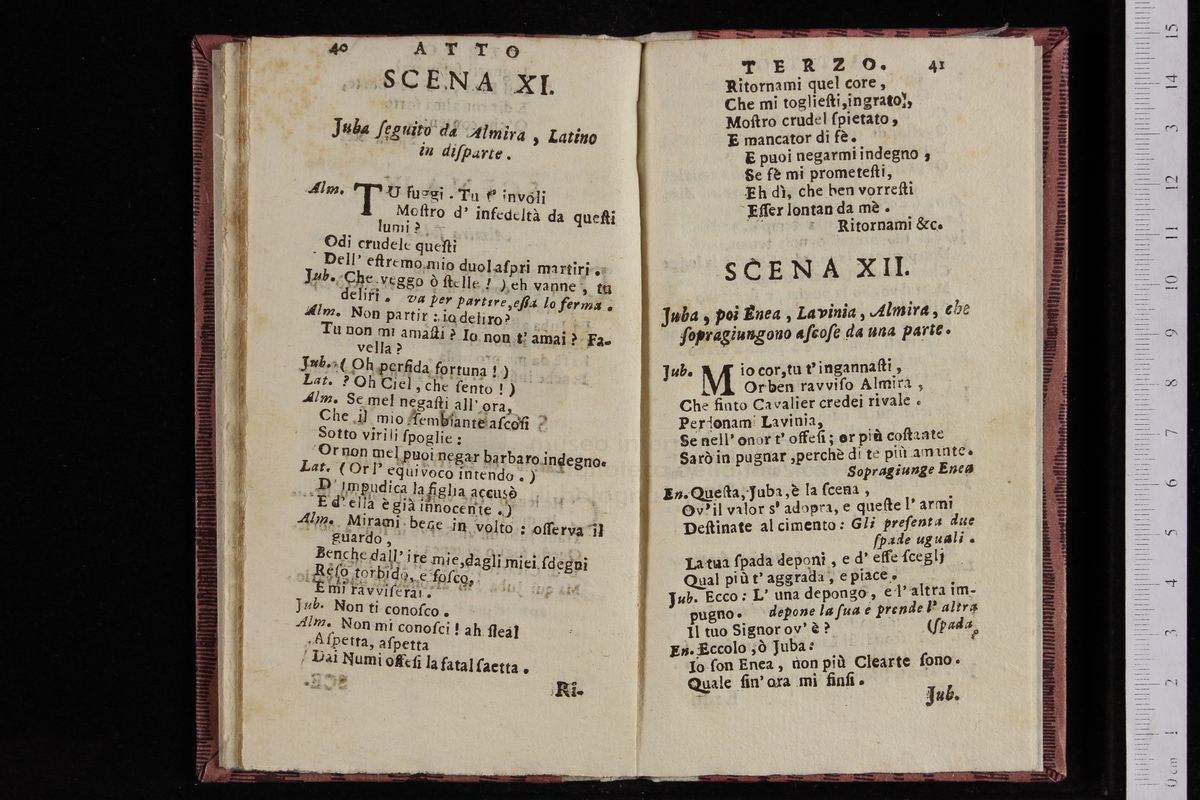 40 ATTO
SCENA XI.
Juba ſeguito da Almira, Latino
in diſparte.
Alm. TU fuggi. Tu t' involi
Moſtro d' infedeltà da queſti
lumi?
Odi crudele queſti
Dell' eſtremo mio duol aſpri martiri.
Jub. Che veggo ò ſtelle! ) eh vanne, tu
deliri. va per partire, eſſa lo ferma.
Alm. Non partir: io deliro?
Tu non mi amaſti? Io non t' amai? Fa-
vella?
Jub. ( Oh perfida fortuna! )
Lat. ? Oh Ciel, che ſento! )
Alm. Se mel negaſti all' ora,
Che il mio ſembiante aſcoſi
Sotto virili ſpoglie:
Or non mel puoi negar barbaro indegno.
Lat. ( Or l' equivoco intendo. )
D' impudica la figlia accusò
E d' ella è già innocente. )
Alm. Mirami bene in volto: oſſerva il
guardo,
Benche dall' ire mie, dagli miei ſdegni
Reſo torbido, e foſco,
E mi ravviſerai.
Jub. Non ti conoſco.
Alm. Non mi conoſci! ah ſleal
Aſpetta, aſpetta
Dai Numi offeſi la fatal ſaetta.
Ri-
TERZO. 41
Ritornami quel core,
Che mi toglieſti, ingrato!,
Moſtro crudel ſpietato,
E mancator di fè.
E puoi negarmi indegno,
Se fè mi prometeſti,
Eh dì, che ben vorreſti
Eſſer lontan da mè.
Ritornami &c.
SCENA XII.
Juba, poi Enea, Lavinia, Almira, che
ſopragiungono aſcoſe da una parte.
Jub. Mio cor, tu t' ingannaſti,
Or ben ravviſo Almira,
Che finto Cavalier credei rivale.
Perdonami Lavinia,
Se nell' onor t' offeſi; or più coſtante
Sarò in pugnar, perchè di te più amante.
Sopragiunge Enea
En. Queſta, Juba, è la ſcena,
Ov' il valor s' adopra, e queſte l' armi
Deſtinate al cimento: Gli preſenta due
ſpade uguali.
La tua ſpada deponi, e d' eſſe ſceglj
Qual più t' aggrada, e piace.
Jub. Ecco: L' una depongo, e l' altra im-
pugno. depone la ſua e prende l' altra
Il tuo Signor ov' è? (ſpada.
En. Eccolo, ò Juba:
Io ſon Enea, non più Clearte ſono.
Quale fin' ora mi finſi.
Jub.